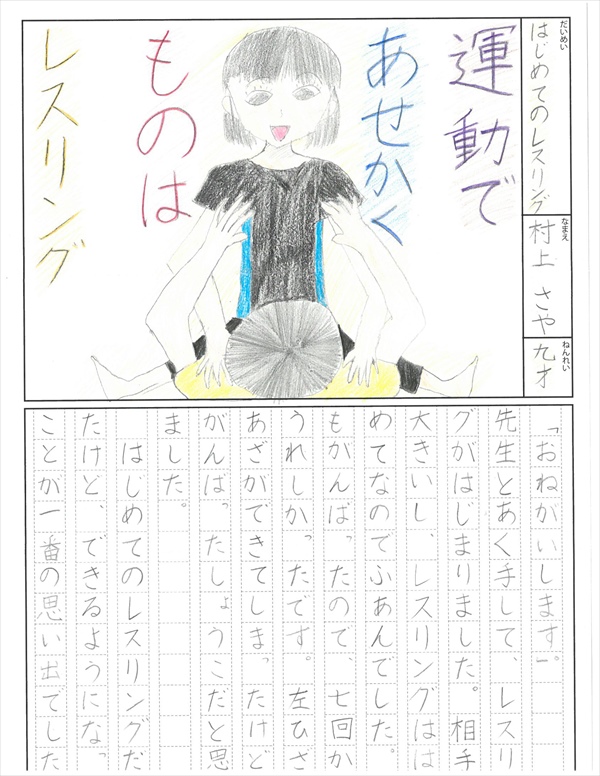 だいめい
はじめてのレスリング
なまえ
村上 さや
ねんれい
九才
運動で
あせかく
ものは
レスリング
「おねがいします」。
先生とあく手して、レスリ
グがはじまりました。相手
大きいし、レスリングはは
めてなのでふあんでした。
もがんばったので、七回か
うれしかったです。左ひざ
あざができてしまったけど
がんばったしょうこだと思
ました。
はじめてのレスリングだ
たけど、できるようになっ
ことが一番の思い出でした